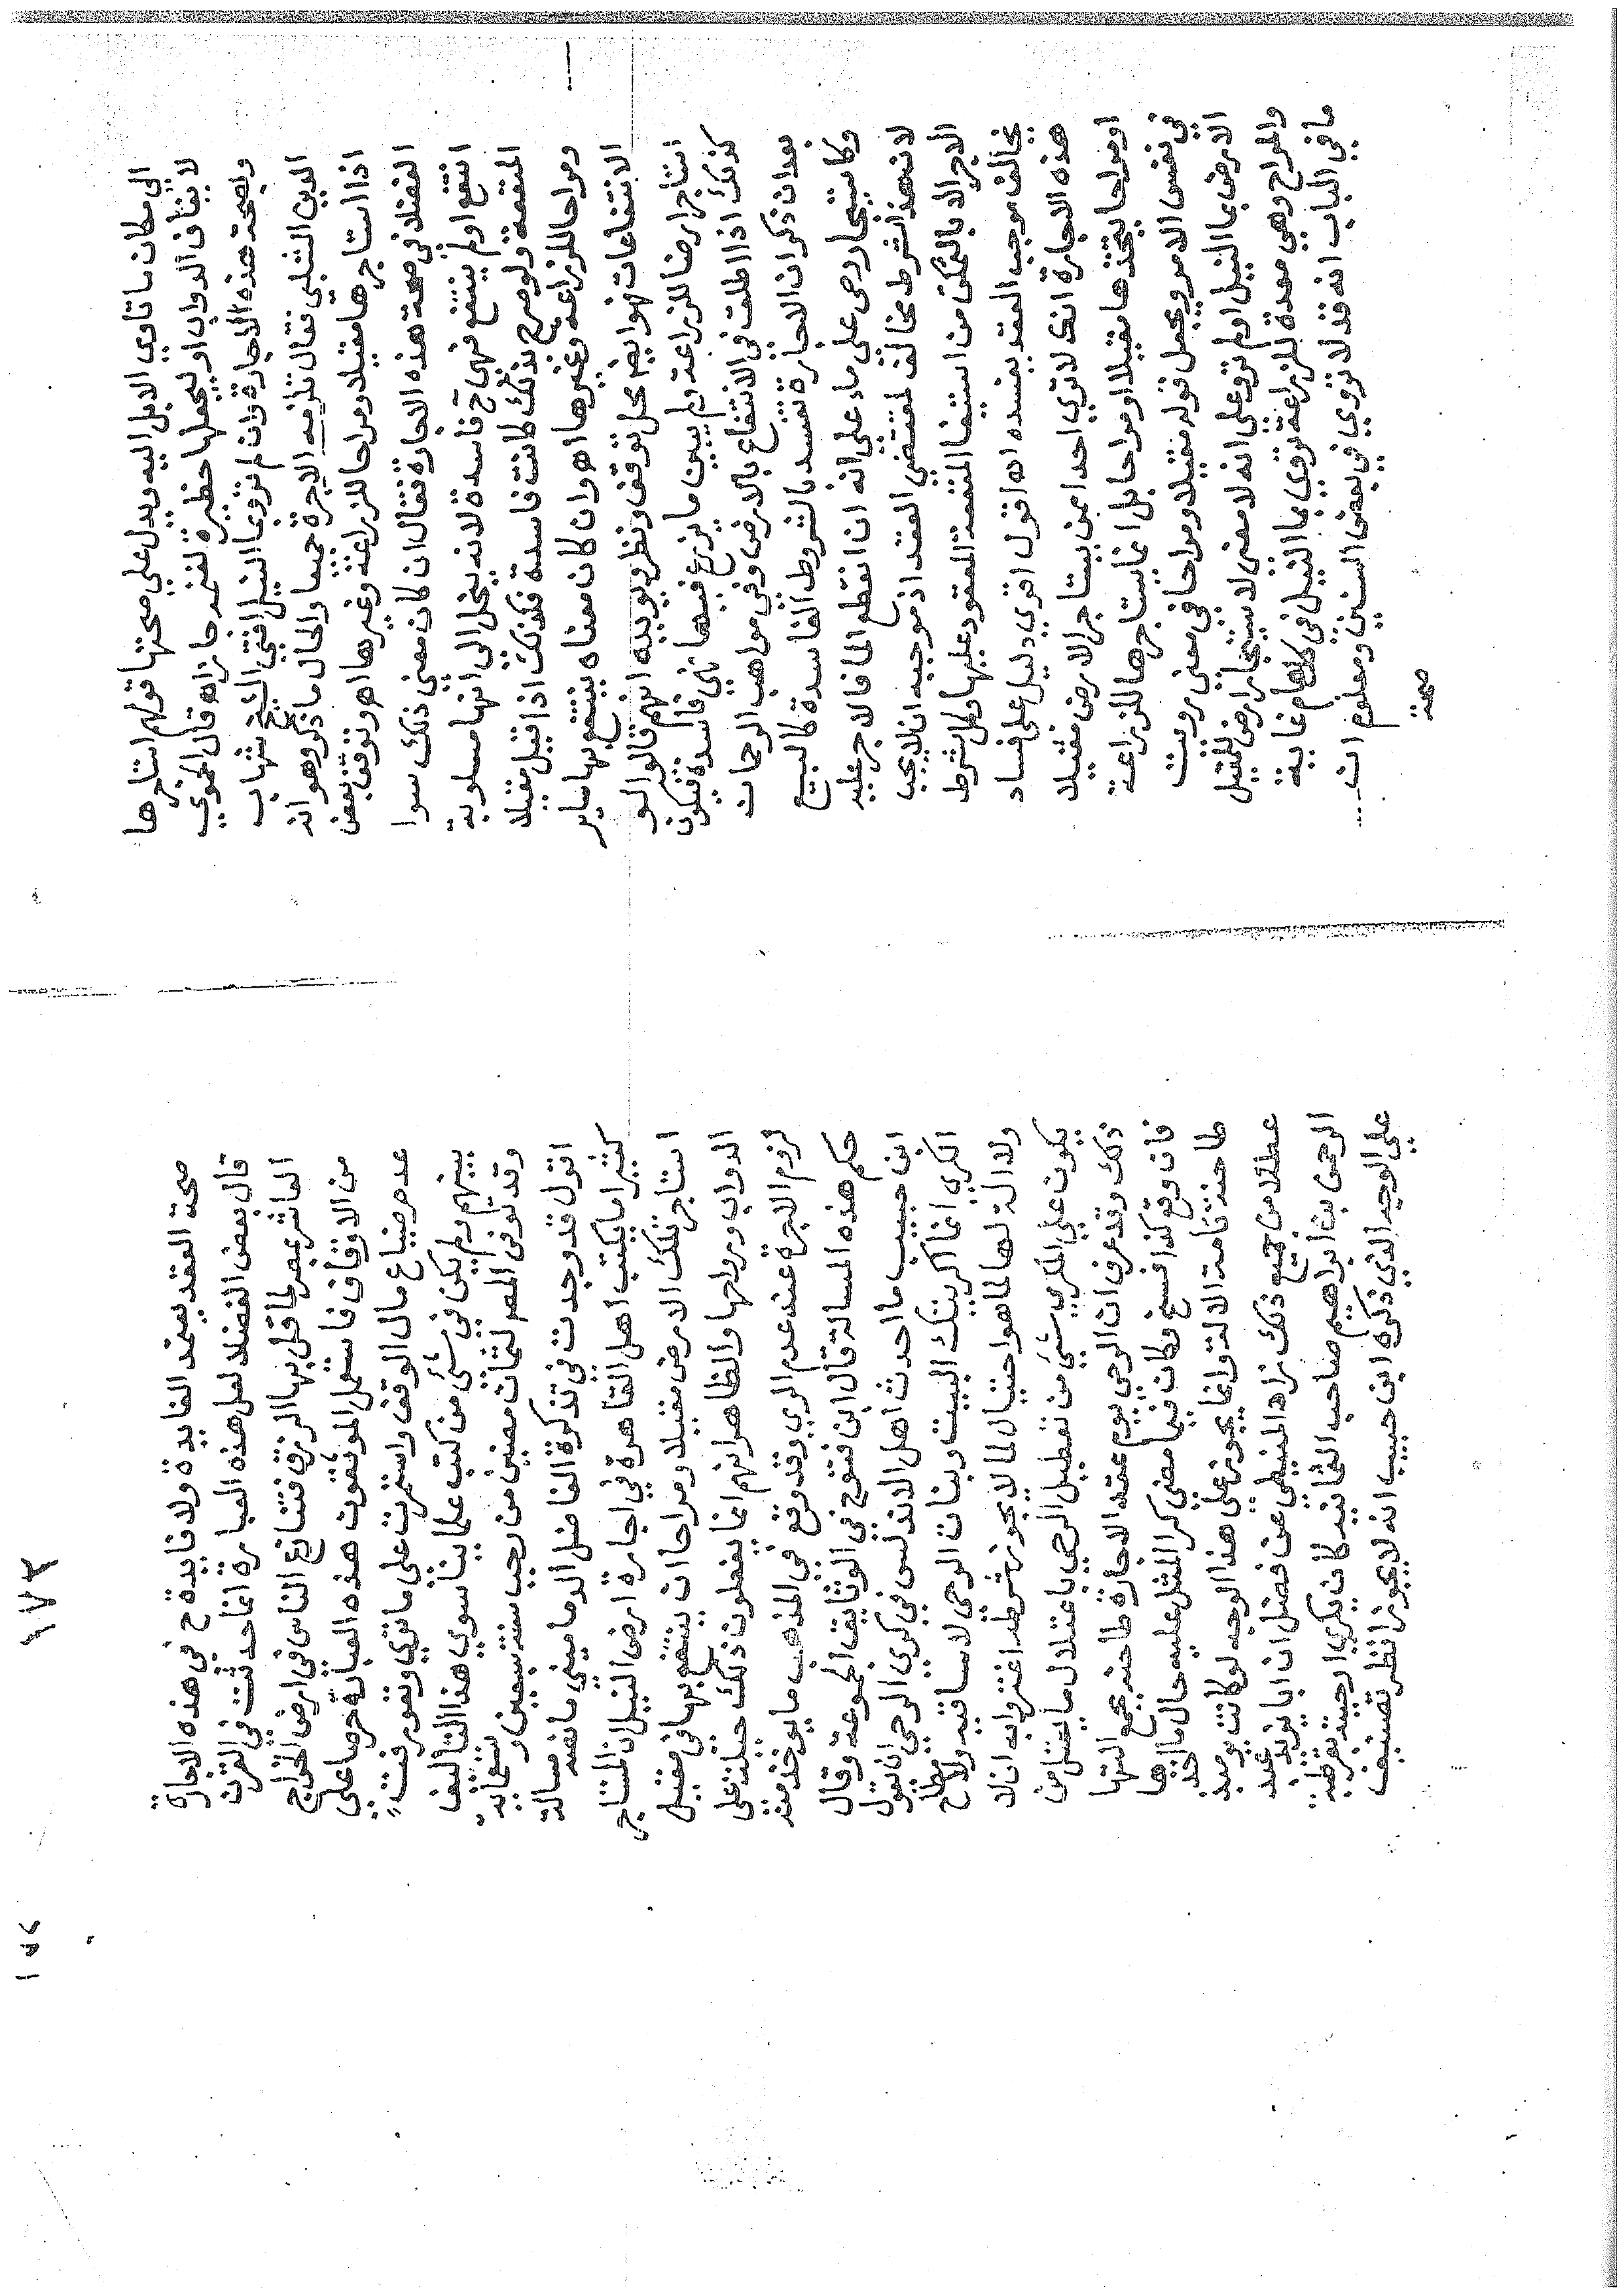 الي مكان تاوي الابل اليه ويدل علي صحتها قولهم استاجرها
لايقاف الدواب او ليجعلها حظيرة لغنمه جاز اه قال الحموي
ولصحة هذه الاجارة وان لم تروي بما النيل افتي الشيخ شهاب
الدين الشلبي فقال تلزمه الاجرة جميعا والحال ما ذكر وهو انه
اذا استاجرها مقيلا ومراحا للزراعة وغيرها اه وتوقف بعض
الفضلا في صحة هذه الاجارة فقال ان كان معني ذلك سوا
انتفع او لم ينتفع فهي ح فاسدة لانه ينحل الي انها مسلوبة
المنفعة ولو صرح بذلك كانت فاسدة فكذلك اذا قيل مقيلا
ومراحا للزراعة وغيرها اه وان كان معناه ينتفع بها ساير
الانتفاعات فهو ايضا محل توقف ونظر ويويده انهم قالوا لو
استاجر ارضا للزراعة ولم يبين ما يزرع فيها فهي فاسدة فيكون
كذلك اذا اطلق في الانتفاع بالارض وفي مواهب الرحمان
بعد ان ذكر ان الاجارة تفسد بالشروط الفاسدة كالبيع
وكاستيجار رحي علي ماء علي انه ان انقطع الما فالاجر عليه
لان هذا شرط مخالف لمقتضي العقد اذ موجبه ان لا يجب
الاجر الا بالتمكن من استيفا المنفعة المعقود عليها وكل شرط
يخالف موجب العقد يفسده اه اقول اقوي دليل علي فساد
هذه الاجارة انك لا تري احدا ممن يستاجر الارض مقيلا
او مراحا يتخذها مقيلا او مراحا بل انما يستاجرها للزراعة
في نفس الامر ويحمل قوله مقيلا ومراحا في معني رويت
الارض بما النيل او لم ترو علي انه لا معني لاستيجار ارض للمقيل
والمراح وهي معدة للزراعة تروي بما النيل في كل عام غاية
ما في الباب انه قد لا تروي في بعض السنين ومعلوم ان
صحة
١٧٣
صحة العقد يعتمد الفايدة ولا فايدة ح في هذه الاجارة
قال بعض الفضلا لعل هذه العبارة انما حدثت في القرن
العاشر بمصر لما قل بها الرزق فتنازع الناس في ارض الخراج
من الاوقاف فاستعمل الموثقون هذه العبارة حرصا علي
عدم ضياع مال الوقف واستمرت علي ما تري وتعورفت
بينهم ولم يكن في شئ من كتب علماينا سوي هذا التاليف
وقد توفي المصر لثمان مضين من رجب سنة سبعين وتسعماية
اقول قد وجدت في تذكرة الفاضل الدماميني ما نصه مسالة
كثيرا ما يكتب اهل القاهرة في اجارة ارض النيل ان المستاجر
استاجر تلك الارض مقيلا ومراحا ان ينتفع بها في مقيل
الدواب ورواحها والظاهر انهم انما يفعلون ذلك حيلة علي
لزوم الاجرة عند عدم الري وقد وقع في المذهب ما يوخذ منه
حكم هذه المسالة قال ابن فتوح في الوثايق المجموعة وقال
ابن حبيب ما احدث اهل الاندلس في كري الرحي ان يقول
الكري انما اكريتك البيت وبنات الرحي لا ساقية ولا مطاح
ولا الة لها لما هو احتيال لما لا يجوز شرطه اغتزابه ان لا
يكون علي المكري شئ من تعطيل الرحي باعتلال ما يعتل من
ذلك وقد عرف ان الرحي يوم عقد الاجارة طاحنة بجميع التها
فان وقع كذا فسخ وكان فيما مضي كرا المثل عليه حال ما اخذها
طاحنة قامة الالة وانما يجوز علي هذا الوجه لو كانت يوميذ
عطلا من جميع ذلك زاد المنيطي عن فضل ان ابا زيد عبد
الرحمن بن ابراهيم صاحب الثمانية كان يكري ارحيته بقرطبة
علي الوجه الذي ذكره ابن حبيب انه لا يجوز انظر تصنيف